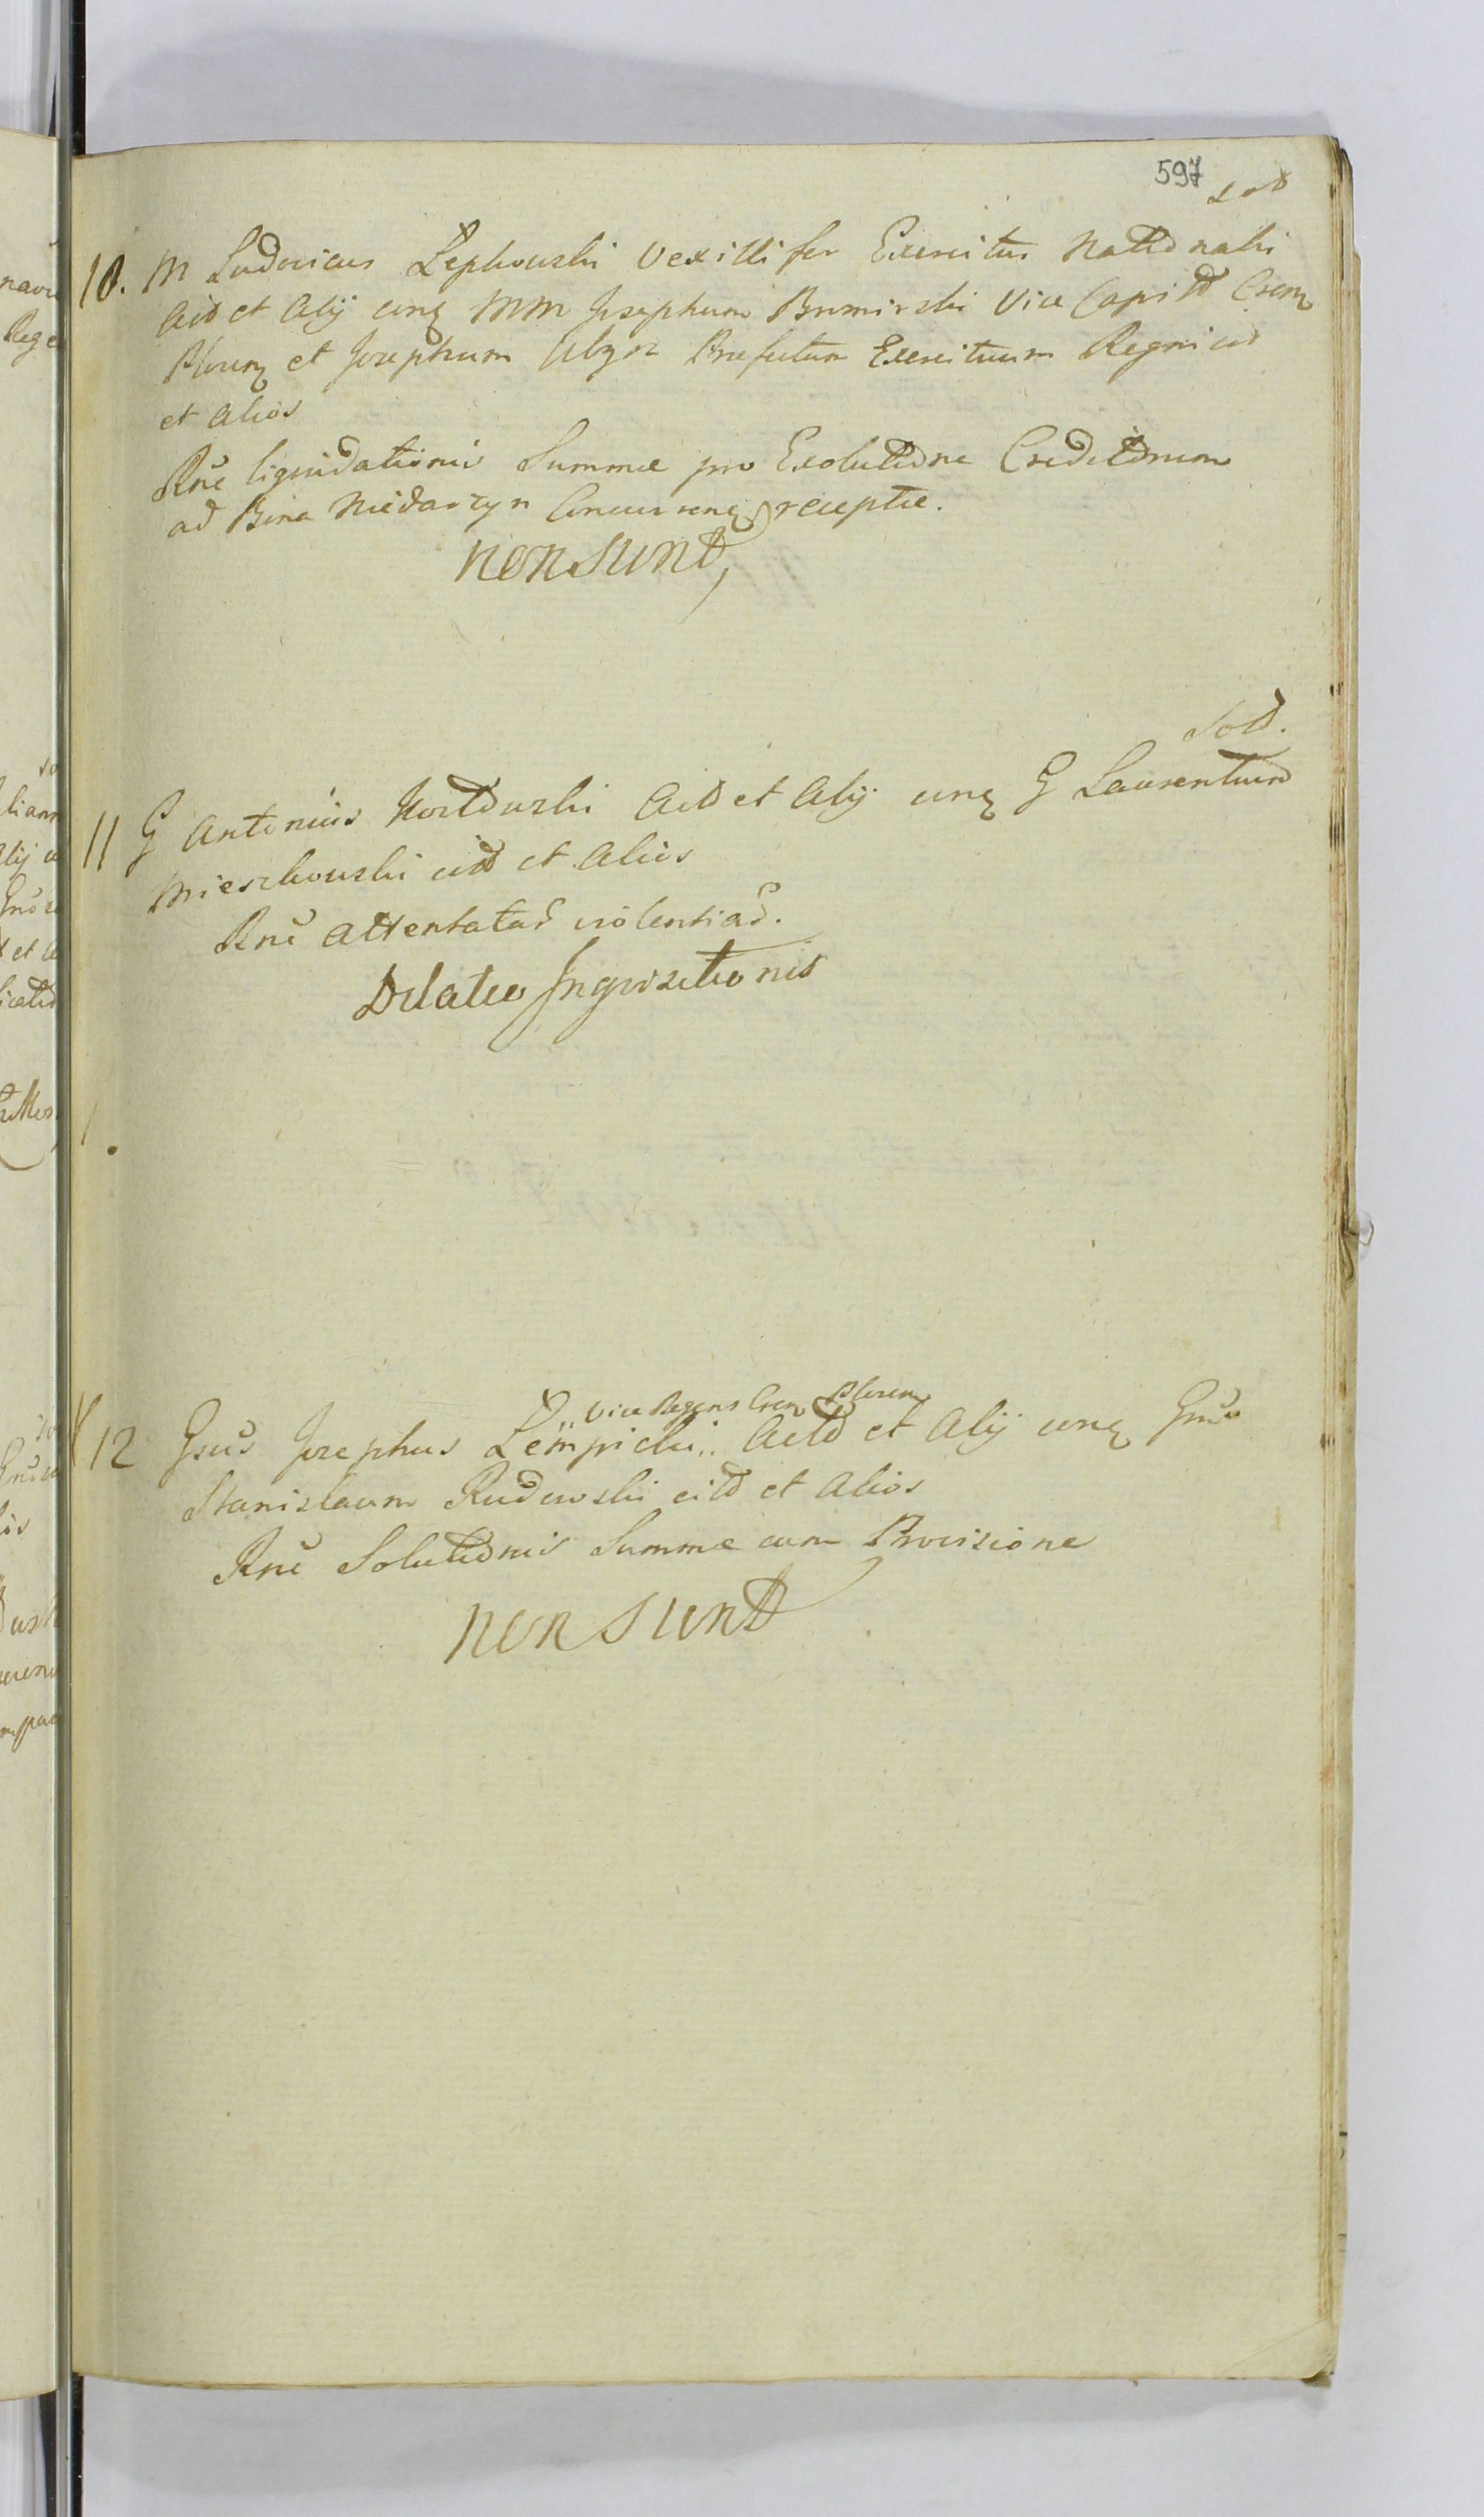 597
sod
10. M Ludovicus Łępkowski Vexillifer Exercitus Nationalis
Actd et Alij cinq MM Josephum Bromirski Vice Capitd Crem
Plocen et Josephum Praefectum Exercituum Regni citd
et Alios
Rne liquidationis Summæ pro Exolutione Creditorum
ad Bona Niedarzyn Concurren receptæ.
non sunt,
sold.
11 G Antonius Actd et Alij cinq G Laurentium
Mieszkowski citd et Alios
Rne attentatar violentiar.
Dilatio Inquisitionis
,, Vice Regens Crem Plocen
12 Gsus Josephus Lempicki ,, Actd et Alij cinq Gnsu
Stanislaum Rudowski citd et Alios
Rne Solutionis Summæ cum Provisione
non sunt